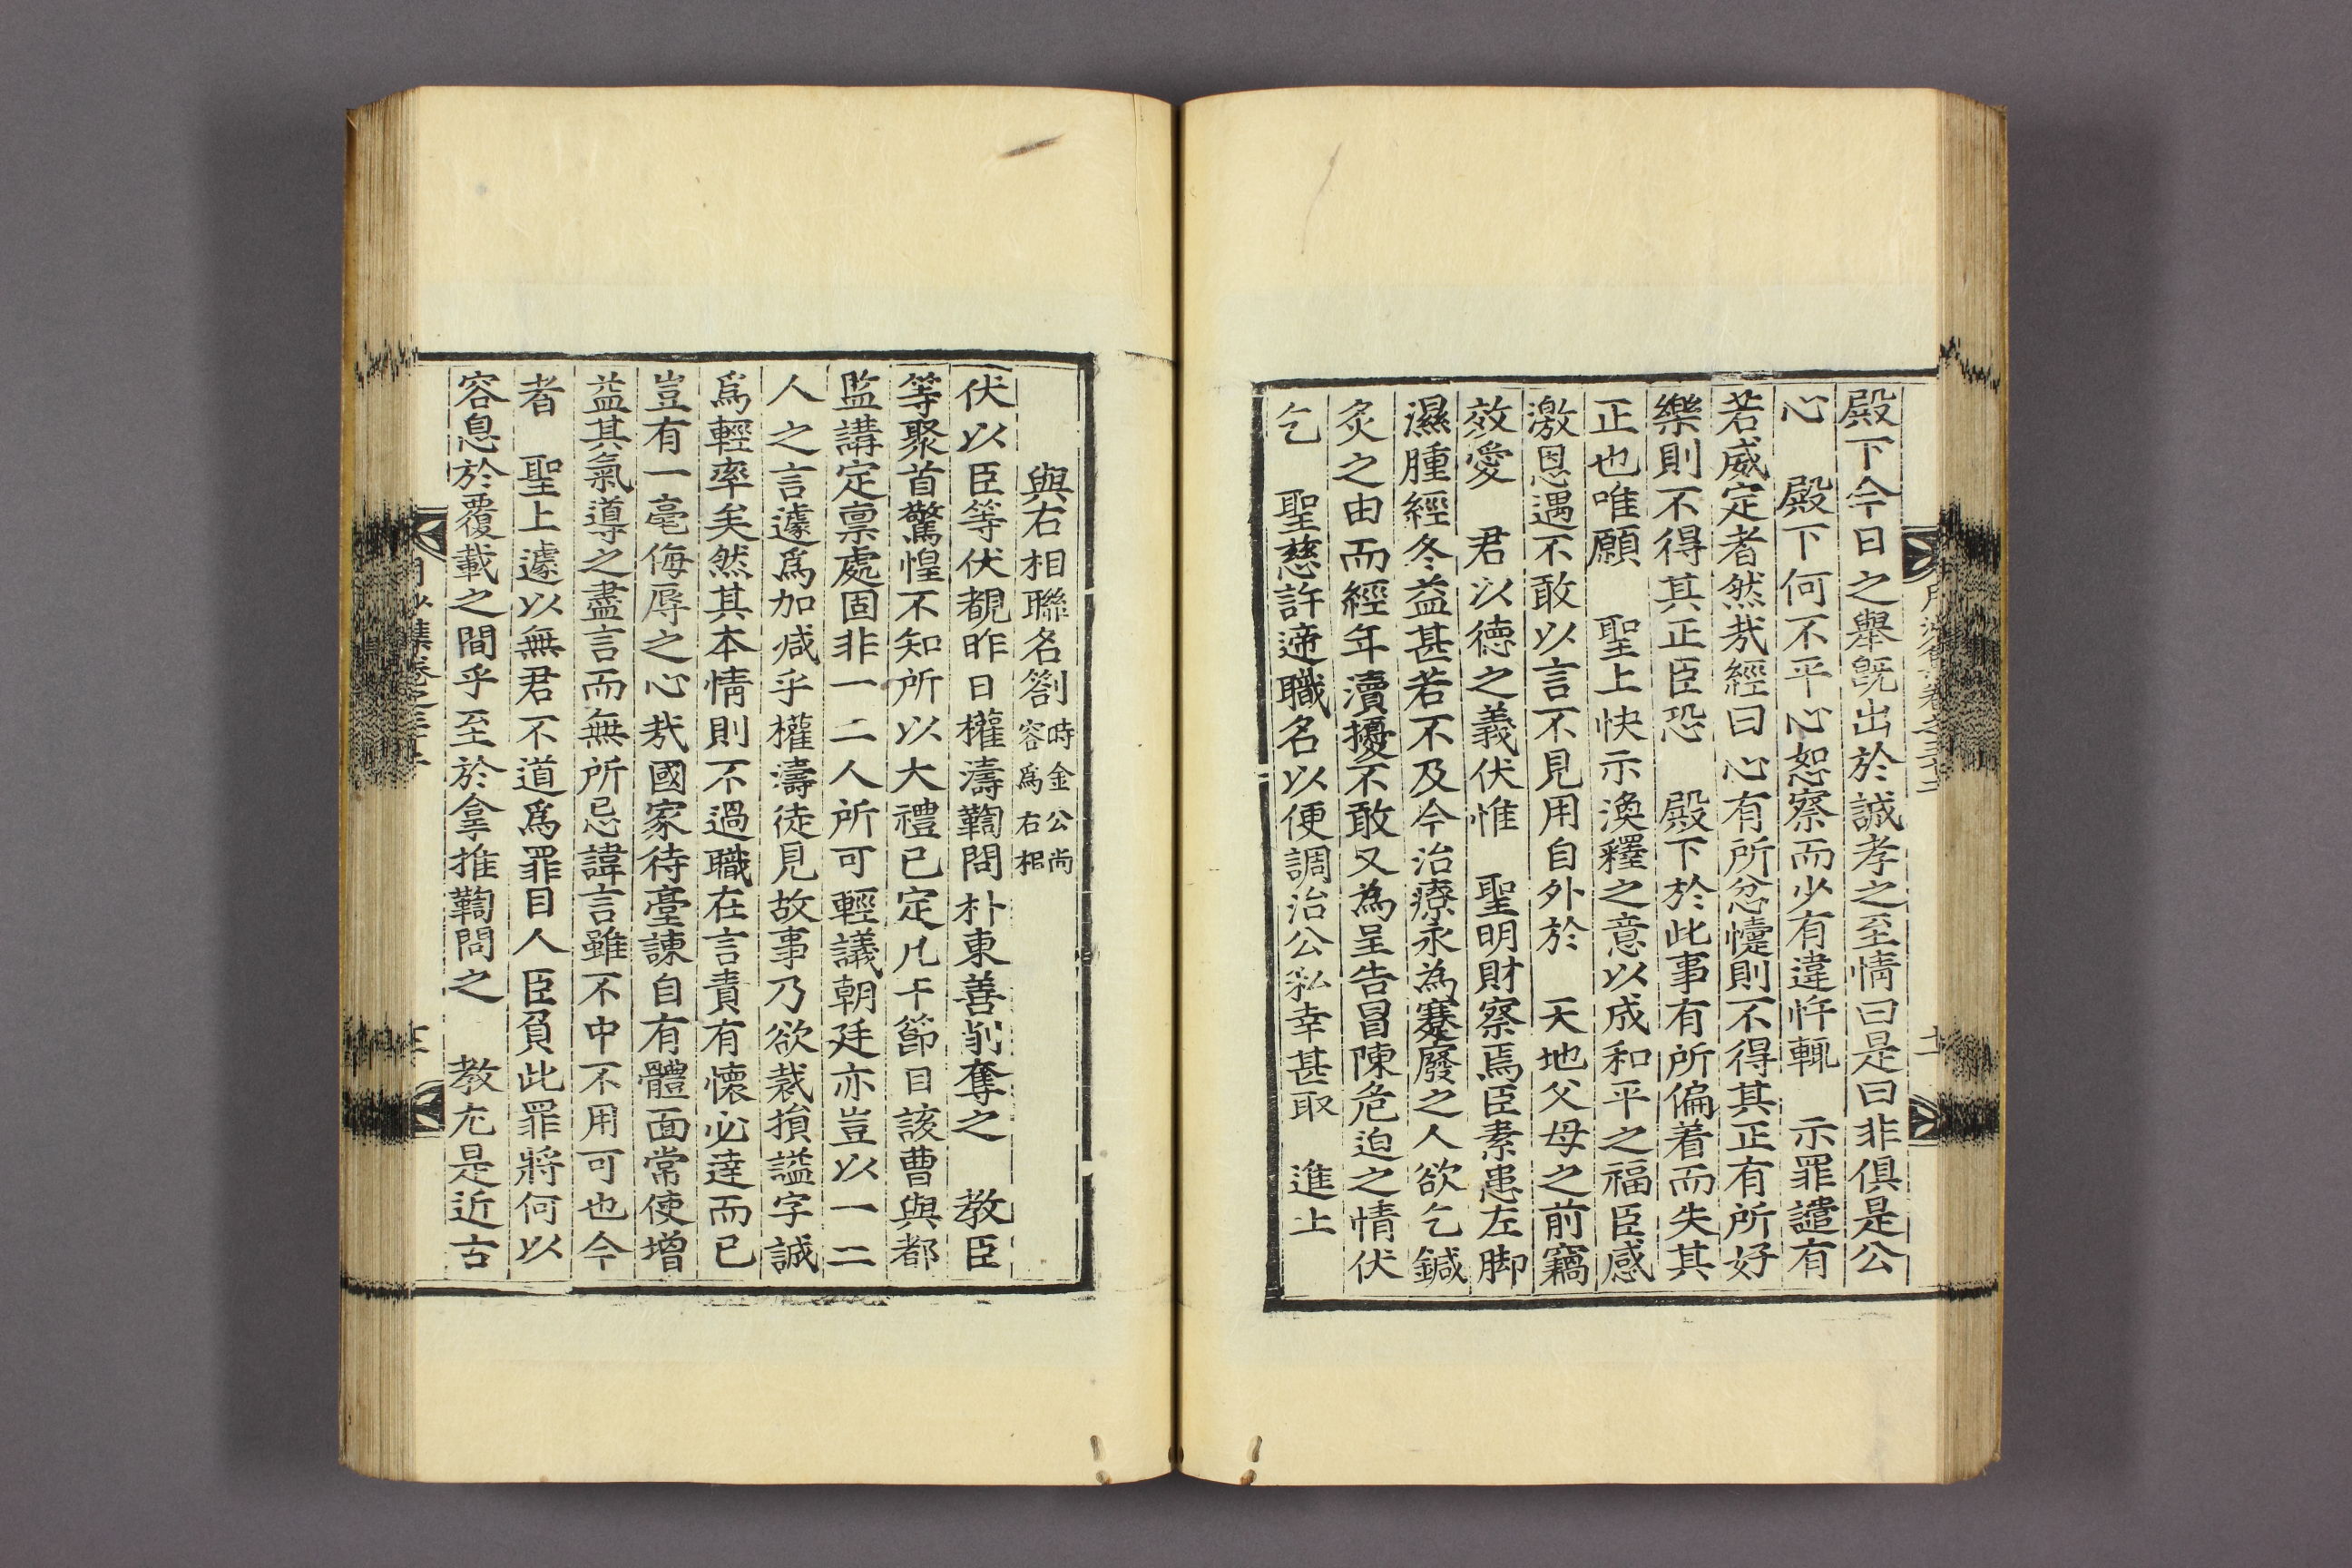 殿下今日之舉旣出於誠孝之至情曰是曰非俱是公
心　殿下何不平心恕察而少有違忤輒　示罪譴有
若威定者然㢤經曰心有所忿懥則不得其正有所好
樂則不得其正臣恐　殿下於此事有所偏着而失其
正也唯願　聖上快示渙釋之意以成和平之福臣感
激恩遇不敢以言不見用自外於　天地父母之前竊
效愛　君以德之義伏惟　聖明財察焉臣素患左脚
濕腫經冬益甚若不及今治療永為蹇廢之人欲乞鍼
灸之由而經年瀆擾不敢又為呈告冒陳危迫之情伏
乞　聖慈許遞職名以便調治公私幸甚取　進止
與右相聯名劄 時金公尙容爲右相
伏以臣等伏覩昨日權濤鞫問朴東善削奪之　教臣
等聚首驚惶不知所以大禮已定凡干節目該曹與都
監講定禀處固非一二人所可輕議朝廷亦豈以一二
人之言遽爲加减乎權濤徒見故事乃欲裁損謚字誠
爲輕率矣然其本情則不過職在言責有懷必達而已
豈有一毫侮辱之心㢤國家待臺諫自有體面常使增
益其氣導之盡言而無所忌諱言雖不中不用可也今
者　聖上遽以無君不道爲罪目人臣負此罪將何以
容息於覆載之間乎至於拿推鞫問之　教尤是近古